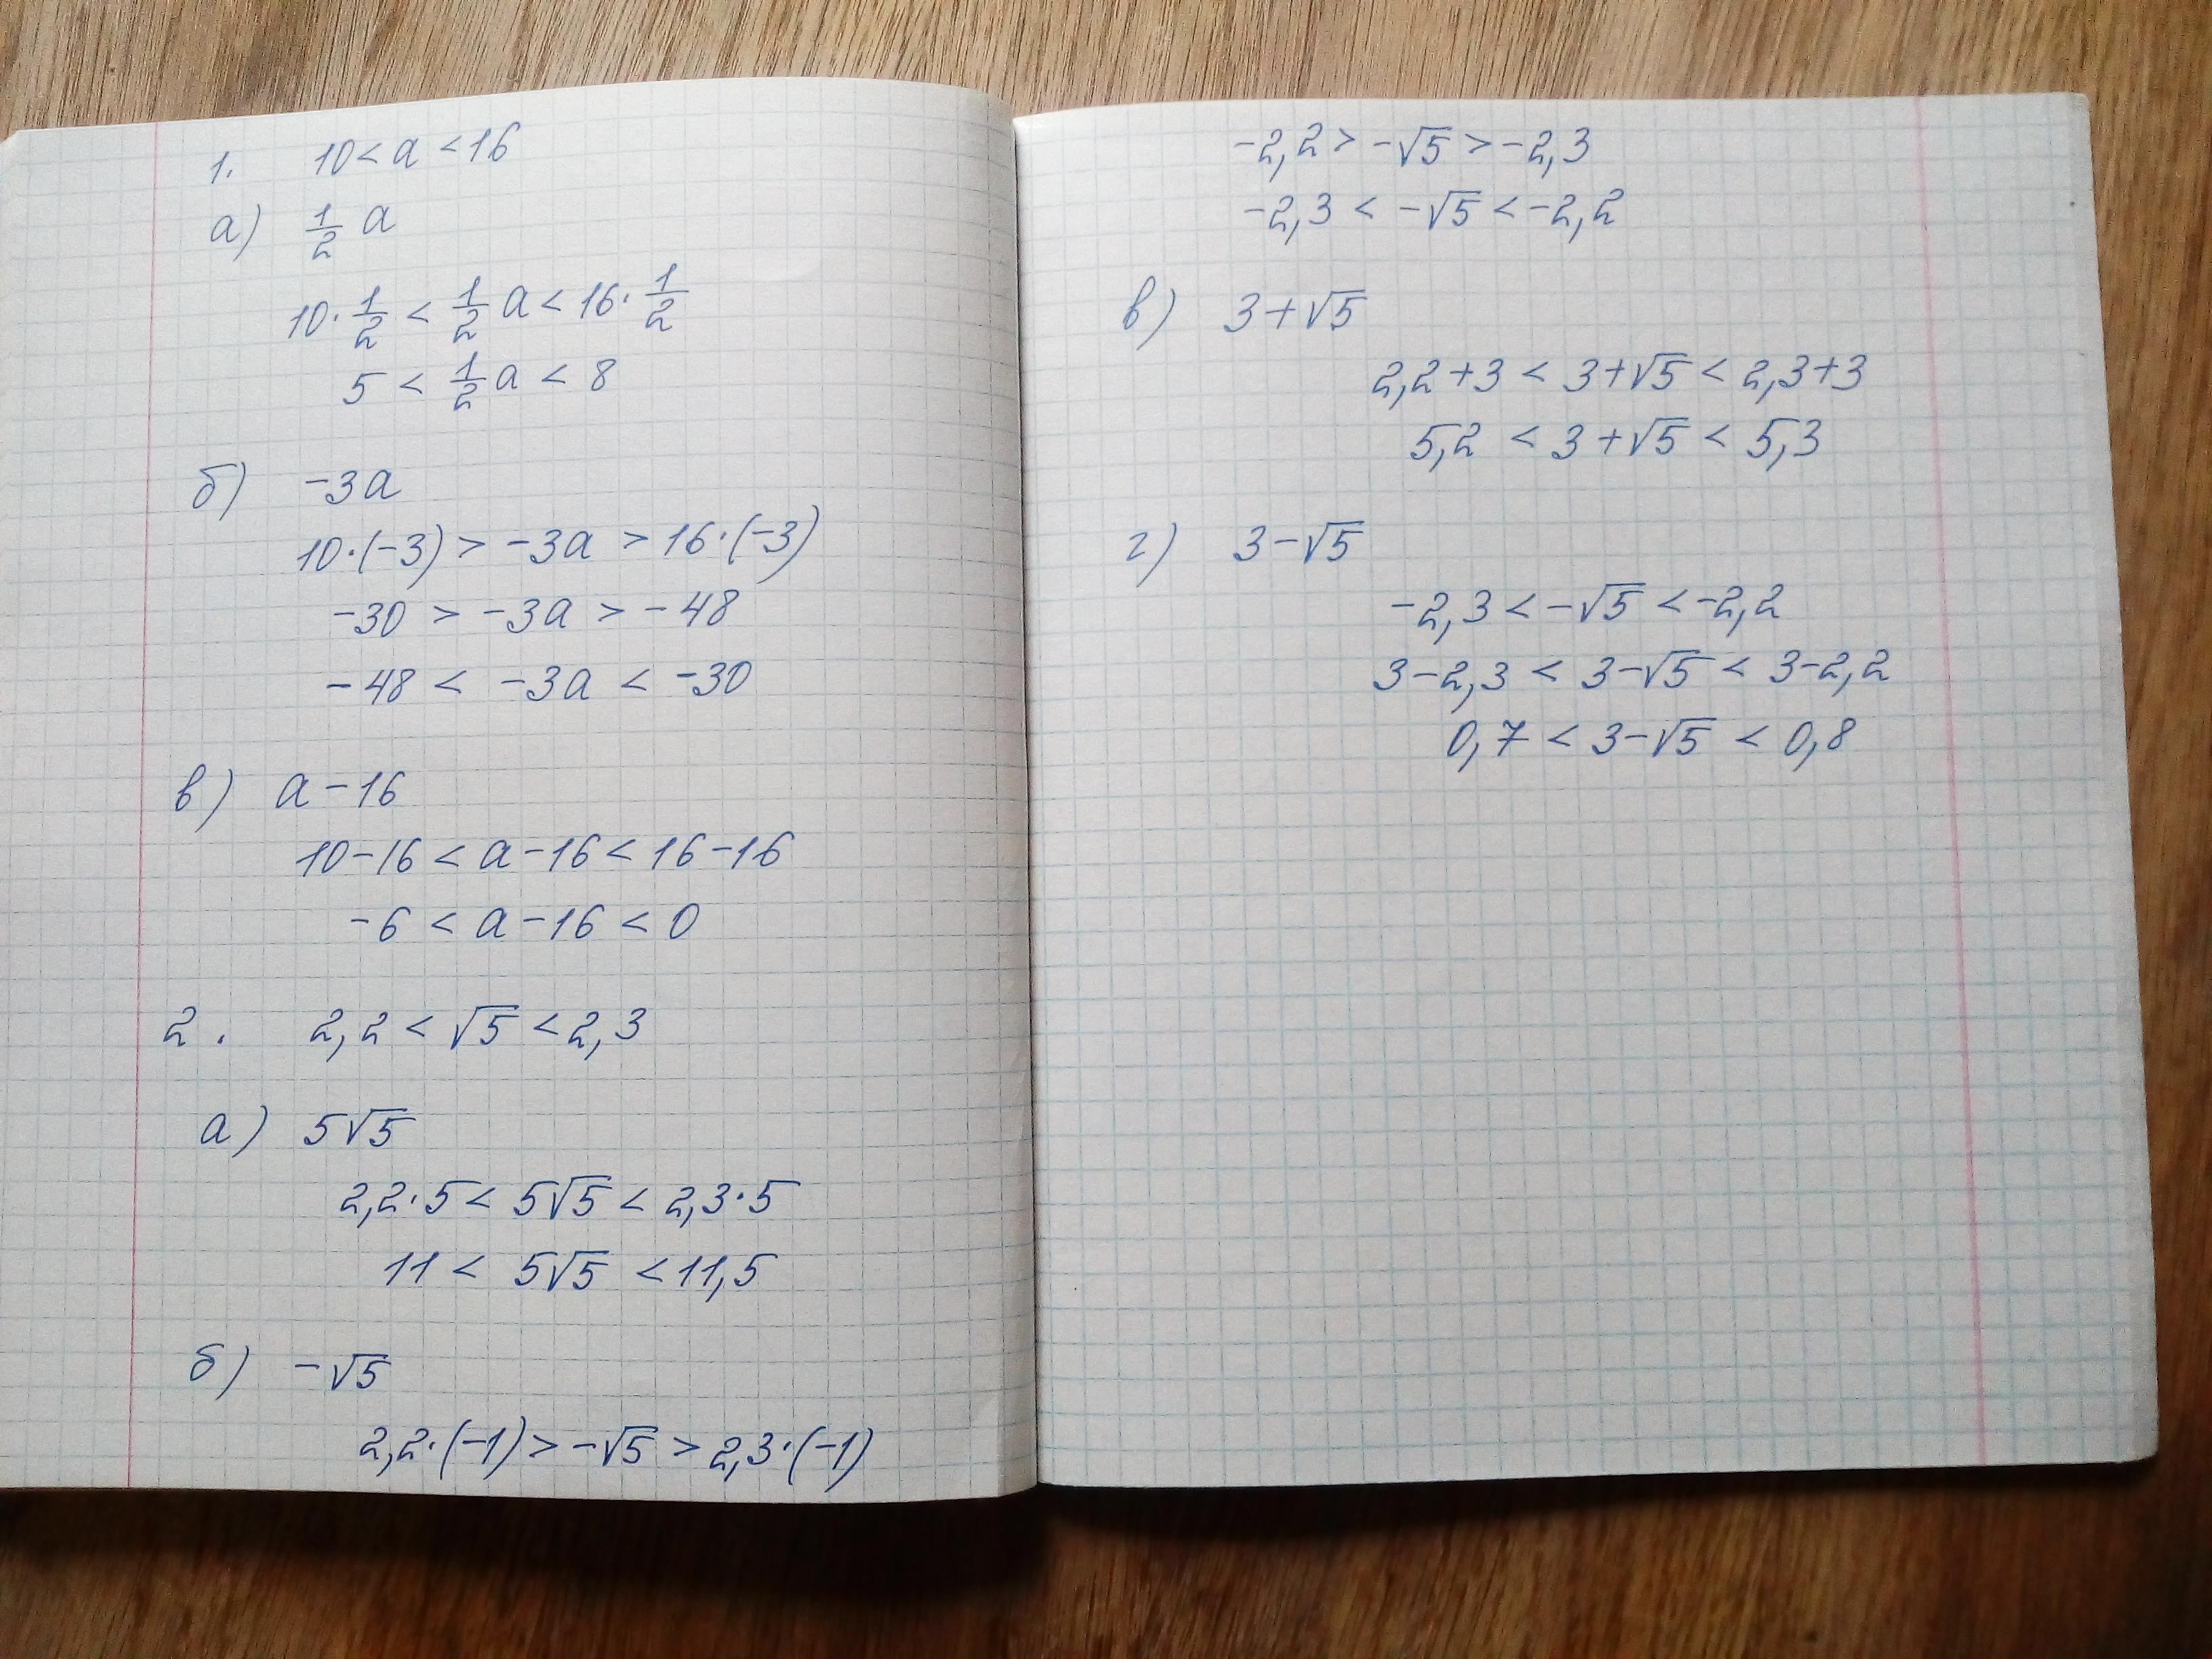 1. 10 < a < 16
а) 1/2 a
10 · 1/2 < 1/2 a < 16 · 1/2
5 < 1/2 a < 8
б) -3a
10·(-3) > -3a > 16·(-3)
-30 > -3a > -48
-48 < -3a < -30
в) a - 16
10-16 < a-16 < 16-16
-6 < a-16 < 0
2. 2,2 < √5 < 2,3
а) 5√5
2,2·5 < 5√5 < 2,3·5
11 < 5√5 < 11,5
б) -√5
2,2·(-1) > -√5 > 2,3·(-1)
-2,2 > -√5 > -2,3
-2,3 < -√5 < -2,2
в) 3+√5
2,2+3 < 3+√5 < 2,3+3
5,2 < 3+√5 < 5,3
г) 3-√5
-2,3 < -√5 < -2,2
3-2,3 < 3-√5 < 3-2,2
0,7 < 3-√5 < 0,8